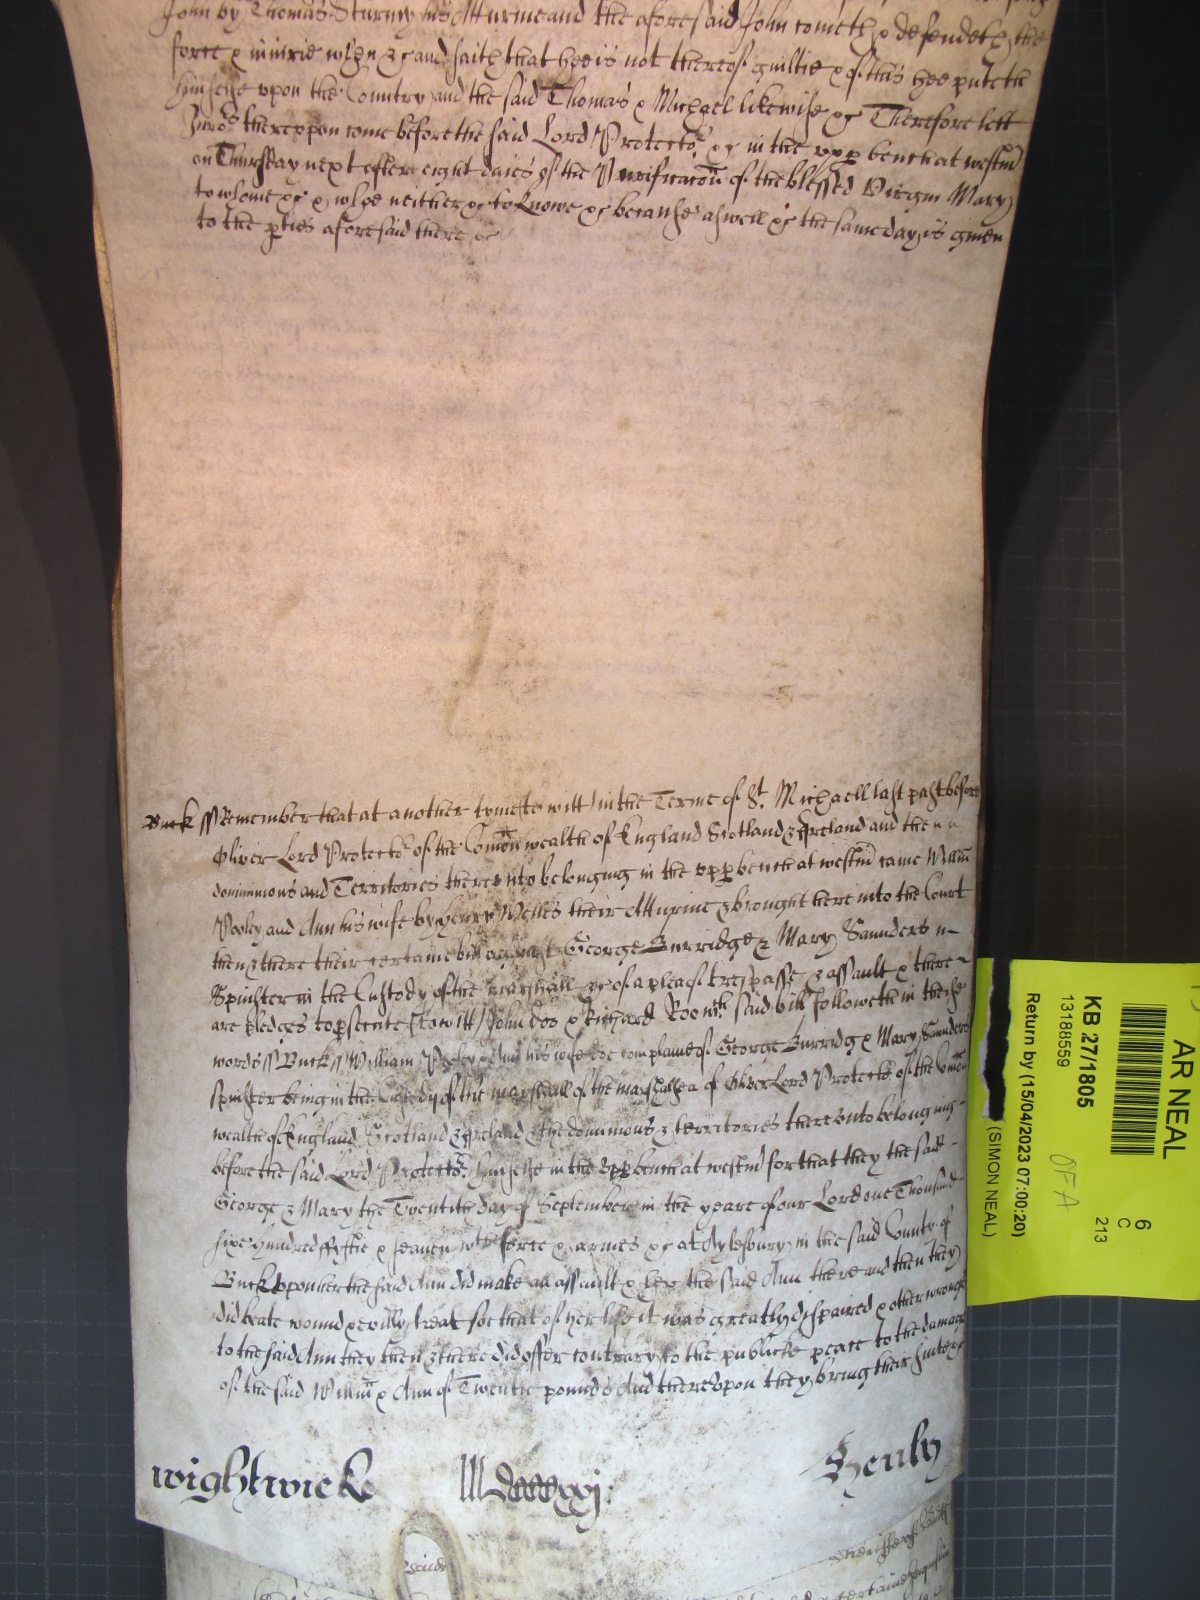 John by Thomas Sturmy his Atturnie and the aforesaid John cometh & defendeth the
force & iniurie when &c and saith that hee is not thereof guiltie & of this hee putteth
himselfe vpon the Country and the said Thomas & Michael likewise &c Therefore lett
Juro:s therevpon come before the said Lord Protector &c in the vpp bench at westm
on Thursday next after eight daies of the Purificacon of the blessed Virgin Mary
to whome &c & whoe neither &c to knowe &c because aswell &c the same day is given
to the pties aforesaid there &c
Buck ss Remember that at another tyme (to witt) in the Terme of St. Michaell last past before
Oliver Lord Protector of the Comon wealth of England Scotland & Ireland and the
dominions and Territories therevnto belonging in the vpp bench at westm came Willm
Pooley and Ann his wife by Henry Welles their Atturnie & brought here into the Court
then & there their certaine bill against George Burridge & Mary Saunders
Spinster in the Custody of the marshall &c of a plea of trespasse & assault & there
are pledges to psecute (to witt) John doo & Richard Roo wch said bill followeth in these
words ss Buck ss William Pooley & Ann his wife doe complaine of George Burridg & Mary Saunders
spinster being in the Custody of the marshall of the marshalsea of Oliver Lord Protector of the Comon
wealth of England Scotland & Ireland & the dominions & territories therevnto belonging
before the said Lord Protector himselfe in the vpp bench at westm for that they the said
George & Mary the Twentith day of September in the yeare of our Lord one Thousand
sixe hundred fyftie & seaven wth force & armes &c at Aylesbury in the said County of
Buck vpon her the said Ann did make an assault & her the said Ann there and then they
did beate wound & evilly treat soe that of her life it was greatly dispaired & other wronges
to the said Ann they then & there did offer contrary to the publicke peace to the damage
of the said Willm & Ann of Twentie pounds And therevpon they bring their suite &c
Wightwick
Henly
AR NEAL
KB 27/1805
13188559
6
C
213
(SIMON NEAL)
Return by (15/04/2023 07:00:20)